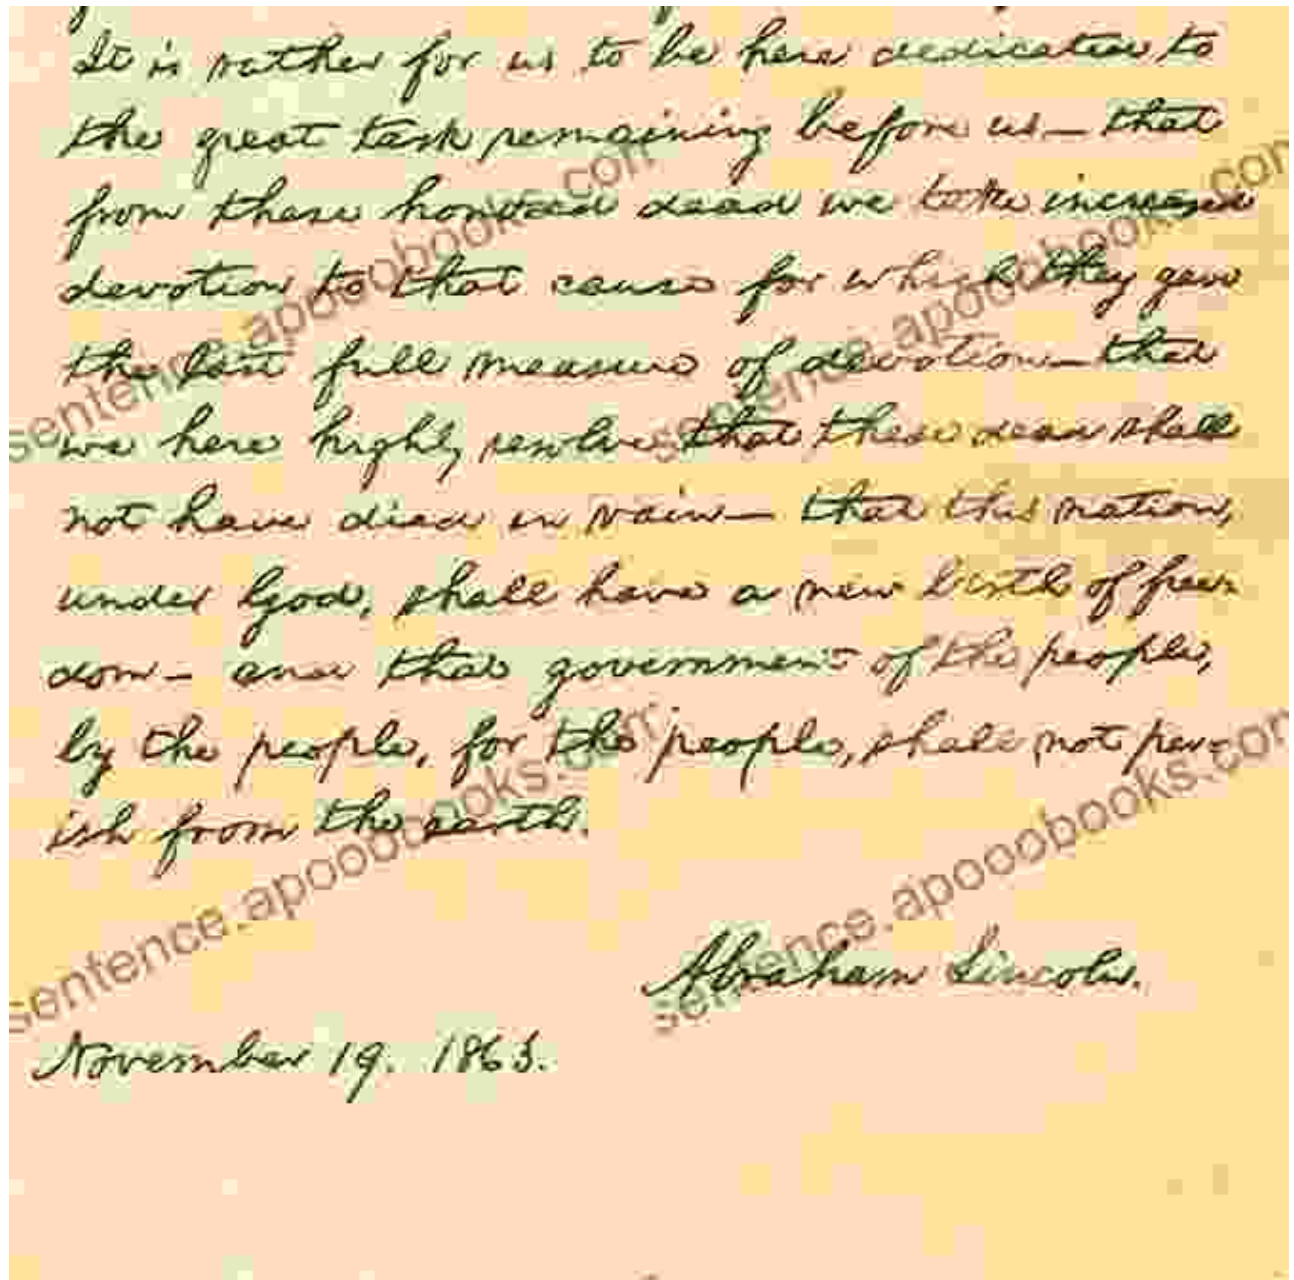 It is rather for us to be here dedicated to
the great task remaining before us— that
from these honored dead we take increased
devotion to that cause for which they gave
the last full measure of devotion— that
we here highly resolve that these dead shall
not have died in vain— that this nation,
under God, shall have a new birth of free-
dom— and that government of the people,
by the people, for the people, shall not per-
ish from the earth.
Abraham Lincoln.
November 19. 1863.
sentence.apooobooks.com
sentence.apooobooks.com
sentence.apooobooks.com
sentence.apooobooks.com